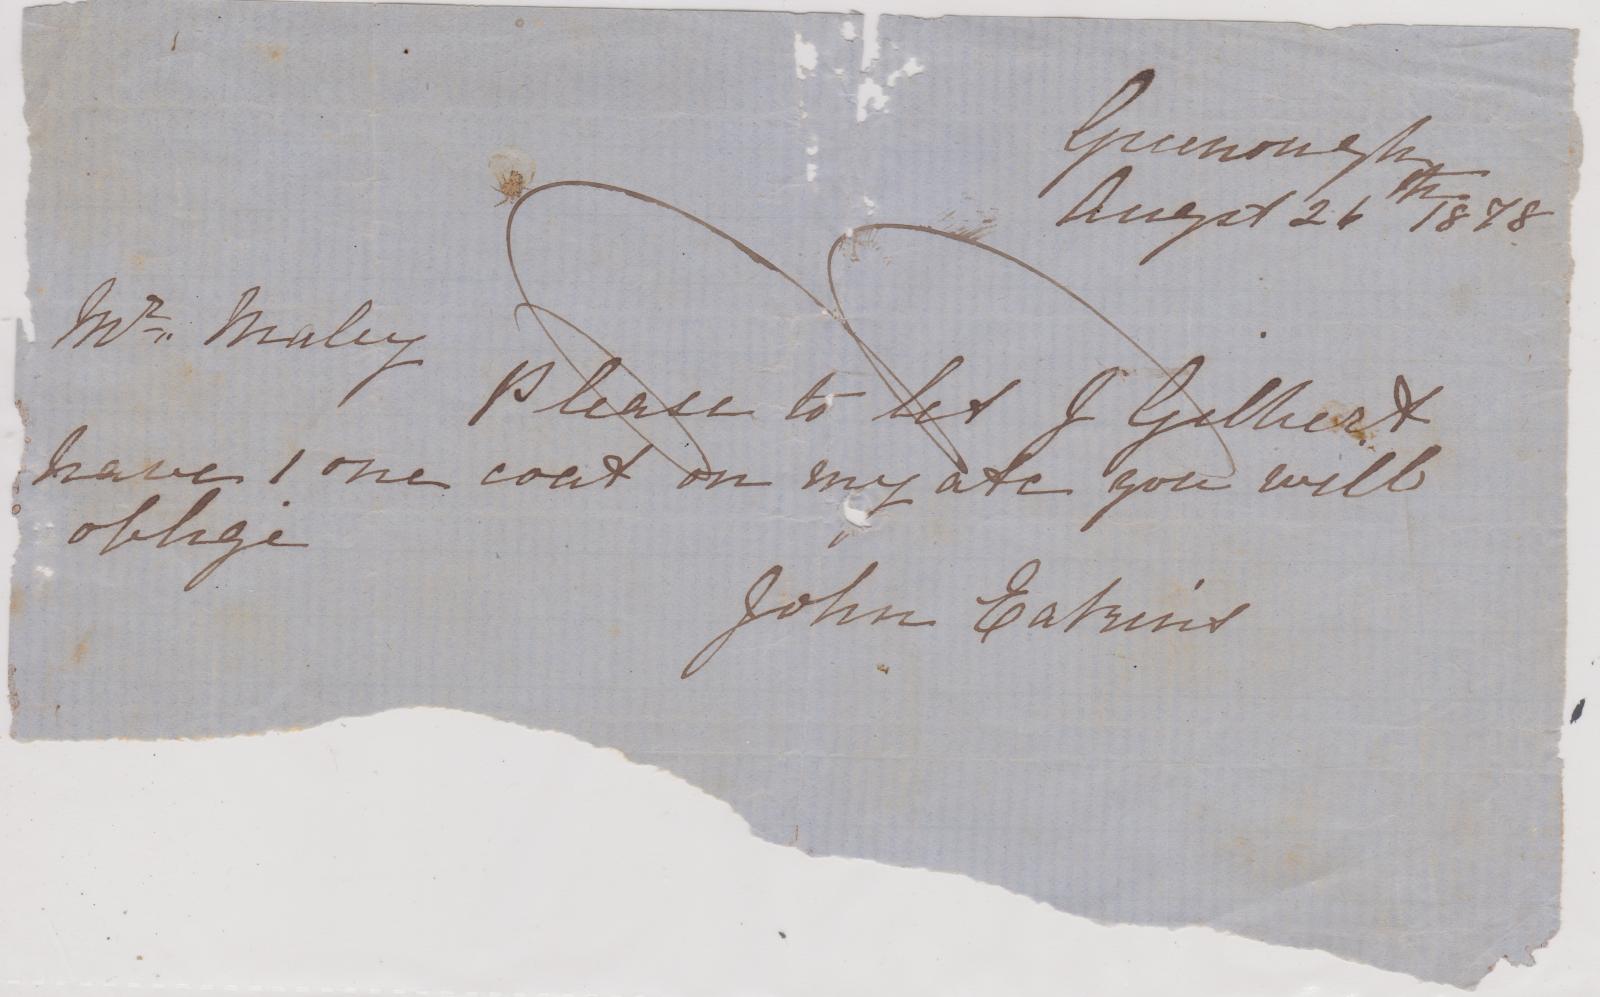 Greenough
Augst 26th 1878
Mr. Maley
Please to let J Gilbert
have 1 one coat on my atc you will
oblige
John Eakins